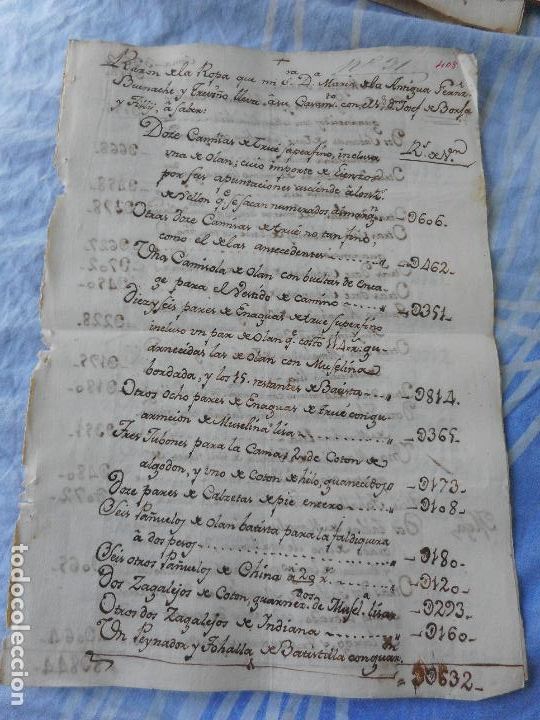 +
Razon de la Ropa que mi S.ra D.a Maria de la Antigua Fern.z
Buenache y Treviño lleva a su Casam.to con el S.r D. Josef de Borja
y Piñs, à saber:
R.s de V.on
Doze Camisas de Truè superfino, inclusa
una de Olan; cuio importe de
por sus apuntaciones asciende
de Vellon q.e se sacan numerados
D606.
Otras doze Camisas de Truè no tan fino,
como el de las antecedentes D462-
Una Camisola de Olan con bueltas de Enca-
ge para el Vestido de Camino D351-
Diez y seis pares de Enaguas de true superfino
incluso un par de Olan q.e costò 114 r.s gu-
arnecidas las de Olan con Muselina
bordada, y los 15. restantes de Batista D814-
Otros ocho pares de Enaguas de true con gu-
arnicion de Muselina lisa D365-
Tres Jubones para la Cama, 2. de Coton de
algodon, y uno de Coton de hilo, guarnecidos D173-
Doze pares de Calzetas de pie entero D108-
Seis Pañuelos de Olan batista para la faldiquera
à dos pesos D180-
Seis otros Pañuelos de China a 20 r.s D120-
Dos Zagalejos de Coton, guarne.dos de Musel.a lisa D293-
Otros dos Zagalejos de Indiana D160-
Un Peynador y Tohalla de Batistilla con guar.n
D3632-
408
todocoleccion